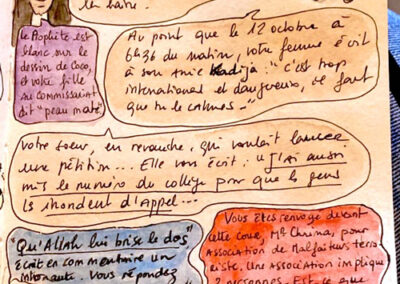 les haïre.
Le Prophète est
blanc sur le
dessin de Coco,
et votre fille
au commissariat
dit "peau mate"
Au point que le 12 octobre à
6h36 du matin, votre femme écrit
à son amie Kadija : "C'est trop
international et dangereux, il faut
que tu le calmes -"
Votre soeur, en revanche, qui voulait lancer
une pétition... Elle vous écrit : "J'ai aussi
mis le numéro du collège pour que les gens
les inondent d'appel...
"Qu'Allah lui brise le dos"
écrit en commentaire un
internaute. Vous répondez
Vous êtes renvoyé devant
cette cour, Mr Chnina, pour
Association de Malfaiteurs terro-
riste. Une association implique
2 personnes. Est-ce que